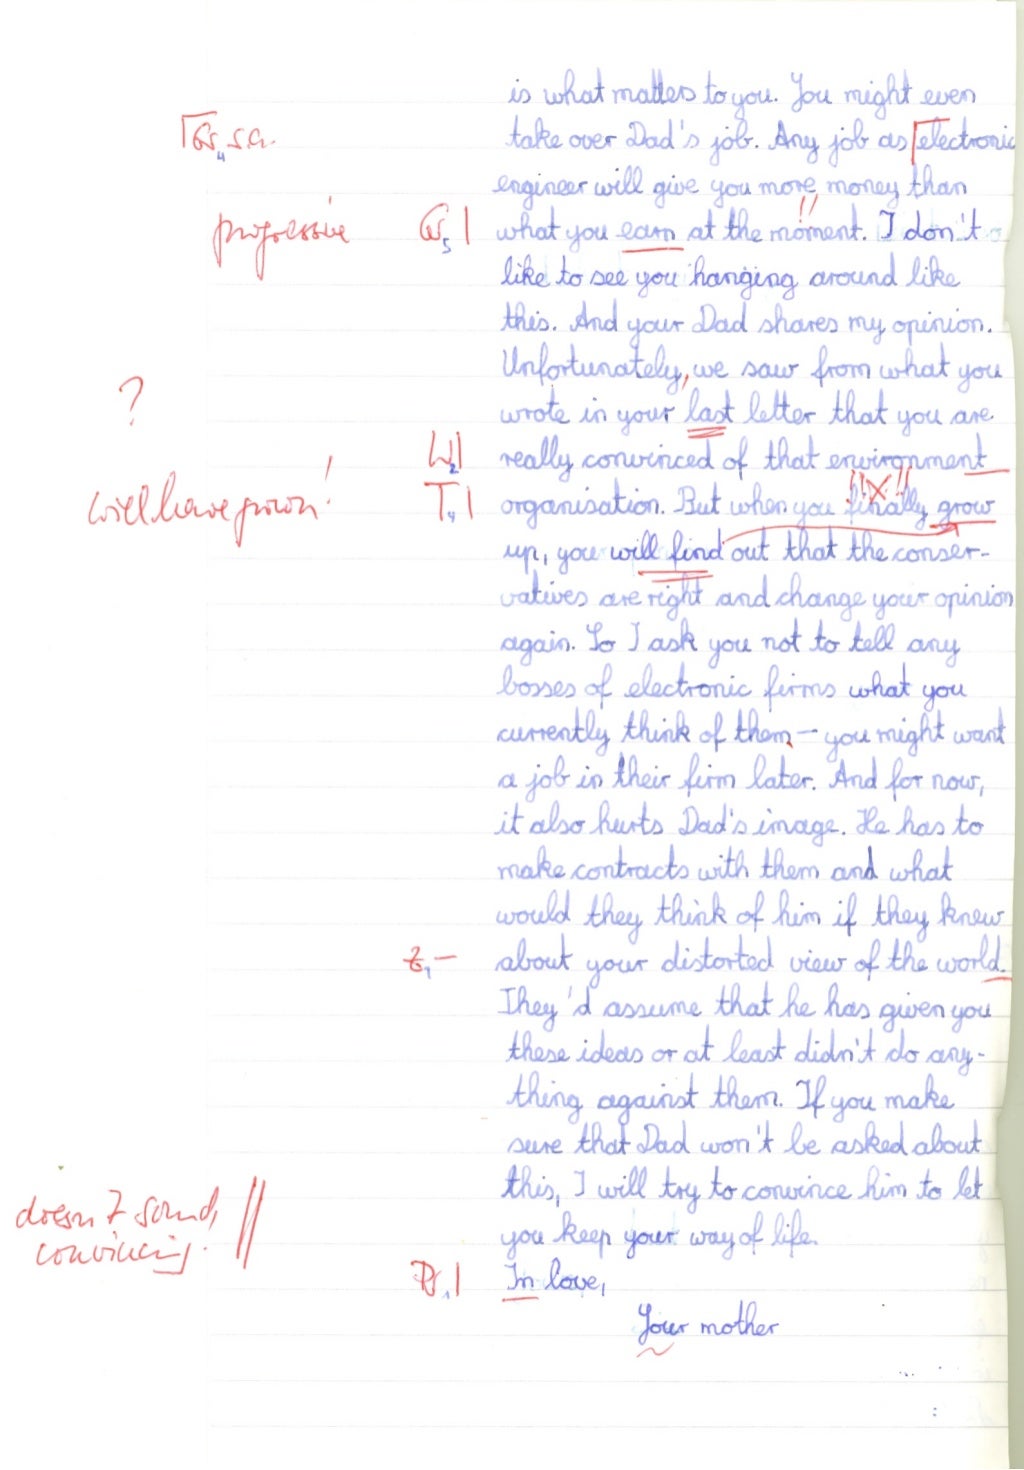 is what matters to you. You might even
Gr4 s.a.
take over Dad's job. Any job as electronic
engineer will give you more money than
progressive Gr5 |
what you earn at the moment. I don't
like to see you hanging around like
this. And your Dad shares my opinion.
Unfortunately, we saw from what you
?
wrote in your last letter that you are
W2|
really convinced of that environment
will have grown! T4 |
organisation. But when you finally grow
up, you will find out that the conser-
vatives are right and change your opinion
again. So I ask you not to tell any
bosses of electronic firms what you
currently think of them. – you might want
a job in their firm later. And for now,
it also hurts Dad's image. He has to
make contracts with them and what
would they think of him if they knew
Z1 –
about your distorted view of the world.
They'd assume that he has given you
these ideas or at least didn't do any-
thing against them. If you make
sure that Dad won't be asked about
this, I will try to convince him to let
doesn't sound
convincing.
you keep your way of life.
In love,
Your mother